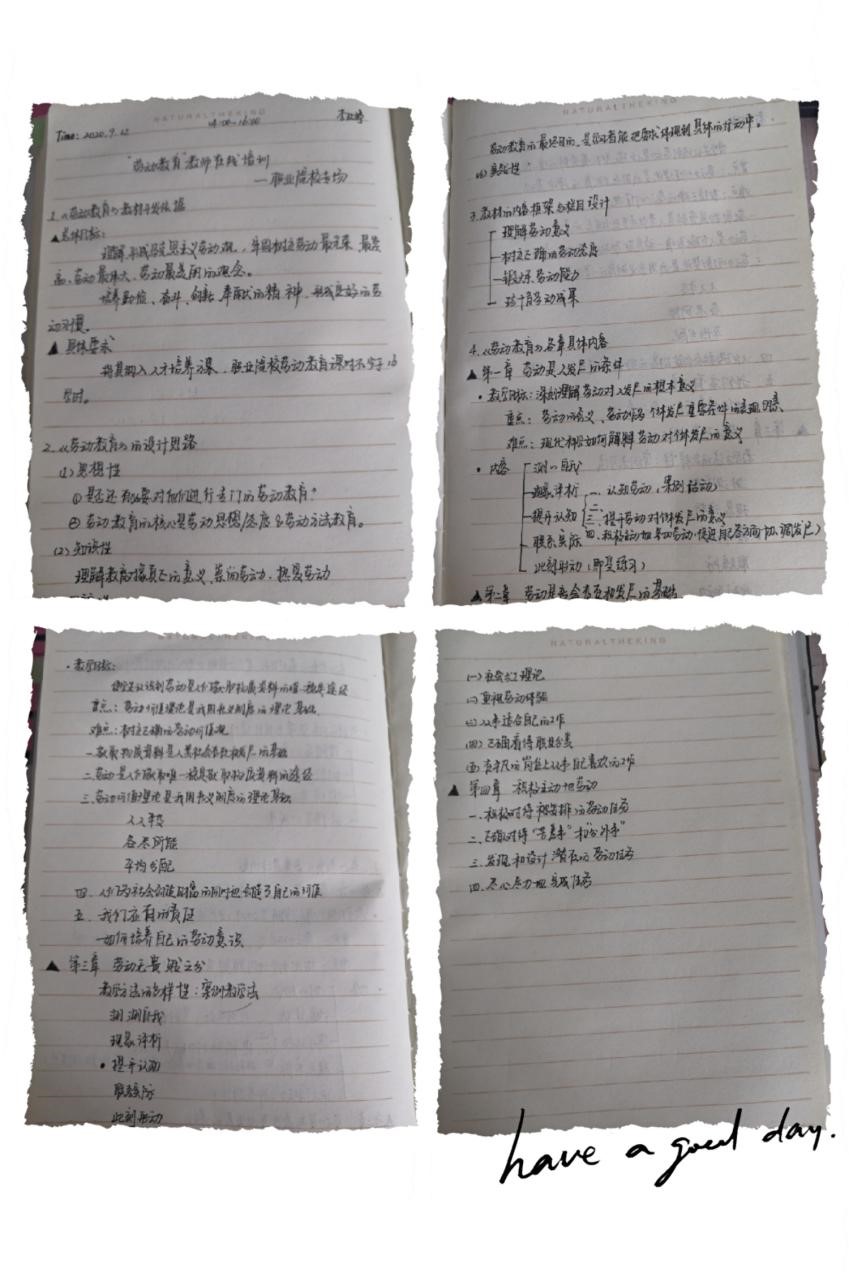 NATURALTHEKING
Time: 2020.9.12 14:00-16:00
"劳动教育"教师在线培训
—职业院校专场
1.《劳动教育》教材开发依据
▲总体目标:
理解形成马克思主义劳动观,牢固树立劳动最光荣、最崇
高、劳动最伟大、劳动最美丽的观念。
培养勤俭、奋斗、创新、奉献的精神,形成良好的劳
动习惯。
▲具体要求
将其纳入人才培养方案,职业院校劳动教育课时不少于16
学时。
2.《劳动教育》的设计思路
(1)思想性
①是否还有必要对他们进行专门的劳动教育?
②劳动教育的核心是劳动思想/态度&劳动方法教育。
(2)知识性
理解教育 的意义、崇尚劳动、热爱劳动
NATURALTHEKING
劳动教育的最终目的,是 能把要求体现到具体的行动中。
(4)实践性
3.教材的内容框架与栏目设计
理解劳动意义
树立正确的劳动态度
锻炼劳动能力
珍惜劳动成果
4.《劳动教育》各章具体内容
▲第一章 劳动是人发展的条件
·教学目标:深刻理解劳动对人发展的根本意义
重点:劳动的含义、劳动作为个体发展重要条件的表现
难点:现代社会如何理解劳动对个体发展的意义
·内容 测一测我
现象评析 一、认知劳动,案例活动
提升认知 二、
三、提升劳动对个体发展的意义
联系实际 四、积极主动地参加劳动,促进自己各方面协调发展
此刻行动(即是练习)
▲第二章 劳动是社会存在和发展的基础
·教学目标:
使学生认识到劳动是人们获取物质资料的唯一根本途径
重点:劳动价值理论是我国分配制度的理论基础
难点:树立正确的劳动价值观
一、获取物质资料是人类社会存在和发展的基础
二、劳动是人们获取唯一稳定获取物质资料的途径
三、劳动价值理论是我国分配制度的理论基础
人人平等
各尽所能
平均分配
四、人们为社会创造财富的同时也创造了自己的价值
五、我们应有的责任
—如何培养自己的劳动意识
▲第三章 劳动无贵贱之分
教学方法的多样性:案例教学法
测测自我
现象评析
·提升认知
联系实际
此刻行动
NATURALTHEKING
(一)社会分工理论
(二)重视劳动体验
(三)从事适合自己的工作
(四)正确看待职业分类
(五)在平凡的岗位上从事自己喜欢的工作
▲第四章 积极主动地劳动
一、积极对待被安排的劳动任务
二、正确对待"苦差事"和"分外事"
三、发现和设计潜在的劳动任务
四、尽心尽力地完成任务
have a good day.